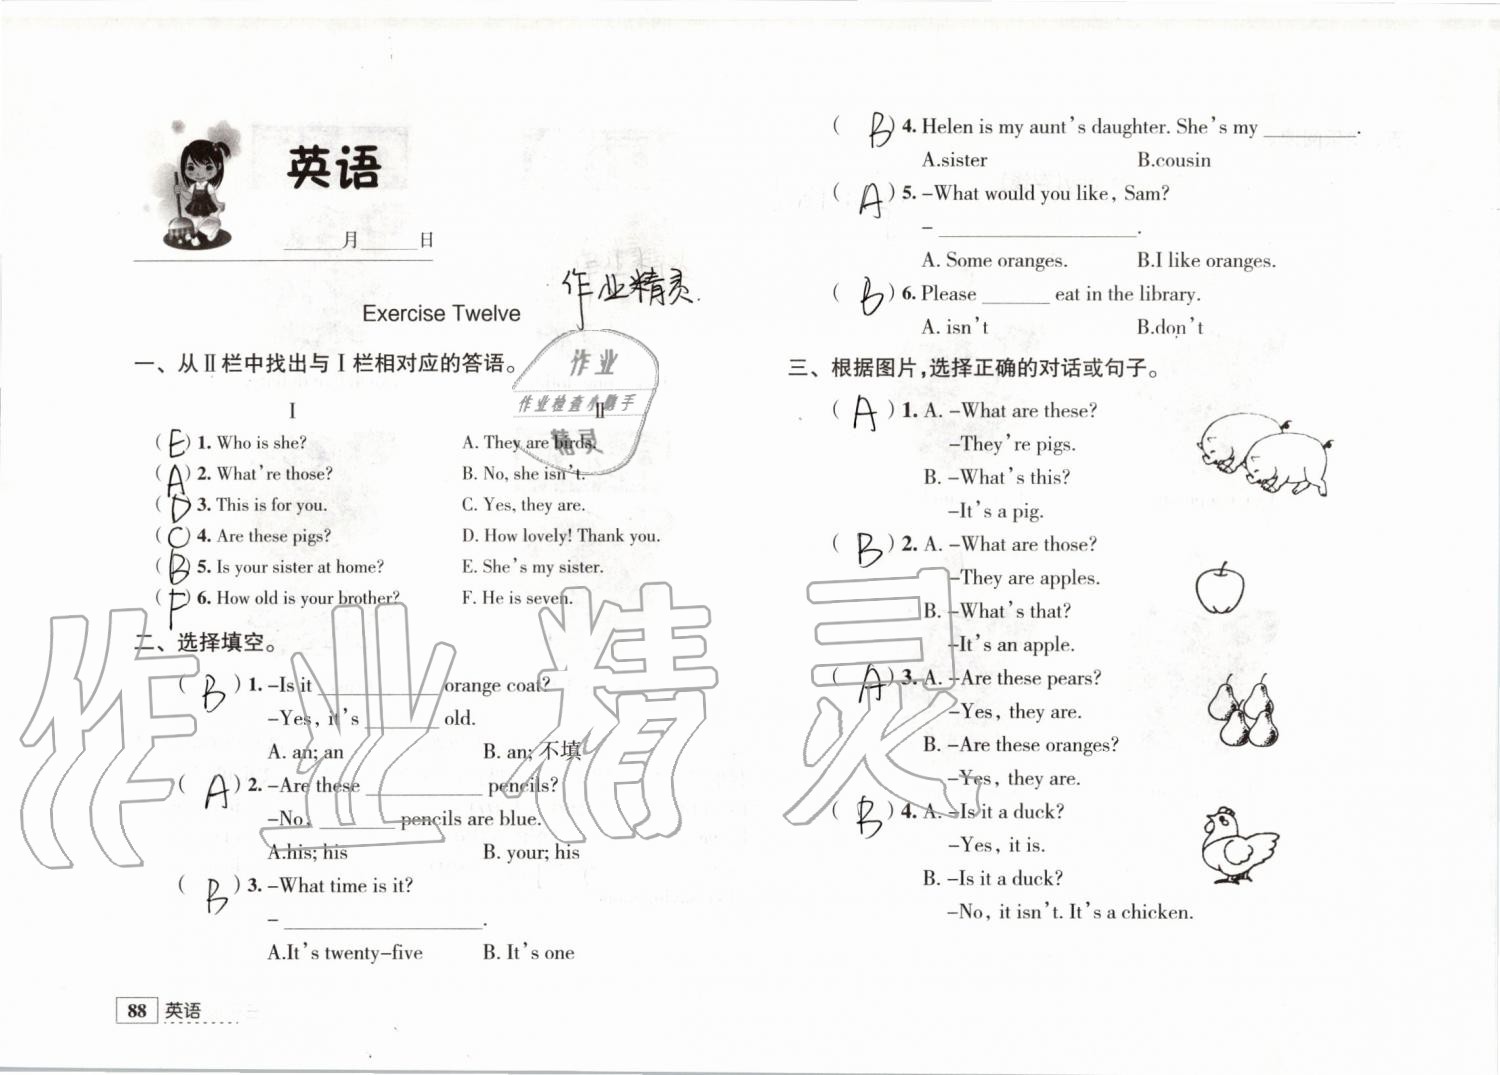 英语
月 日
作业精灵
Exercise Twelve
一、从Ⅱ栏中找出与Ⅰ栏相对应的答语。
作业
作业检查小助手
精灵
Ⅰ Ⅱ
( E ) 1. Who is she? A. They are birds.
( A ) 2. What're those? B. No, she isn't.
( D ) 3. This is for you. C. Yes, they are.
( C ) 4. Are these pigs? D. How lovely! Thank you.
( B ) 5. Is your sister at home? E. She's my sister.
( F ) 6. How old is your brother? F. He is seven.
二、选择填空。
( B ) 1. –Is it ____________ orange coat?
–Yes, it's ________ old.
A. an; an B. an; 不填
( A ) 2. –Are these ____________ pencils?
–No, ________ pencils are blue.
A.his; his B. your; his
( B ) 3. –What time is it?
– ____________________.
A.It's twenty–five B. It's one
88 英语
( B ) 4. Helen is my aunt's daughter. She's my __________.
A.sister B.cousin
( A ) 5. –What would you like, Sam?
– ____________________.
A. Some oranges. B.I like oranges.
( B ) 6. Please _______ eat in the library.
A. isn't B.don't
三、根据图片,选择正确的对话或句子。
( A ) 1. A. –What are these?
–They're pigs.
B. –What's this?
–It's a pig.
( B ) 2. A. –What are those?
–They are apples.
B. –What's that?
–It's an apple.
( A ) 3. A. –Are these pears?
–Yes, they are.
B. –Are these oranges?
–Yes, they are.
( B ) 4. A. –Is it a duck?
–Yes, it is.
B. –Is it a duck?
–No, it isn't. It's a chicken.
作业精灵